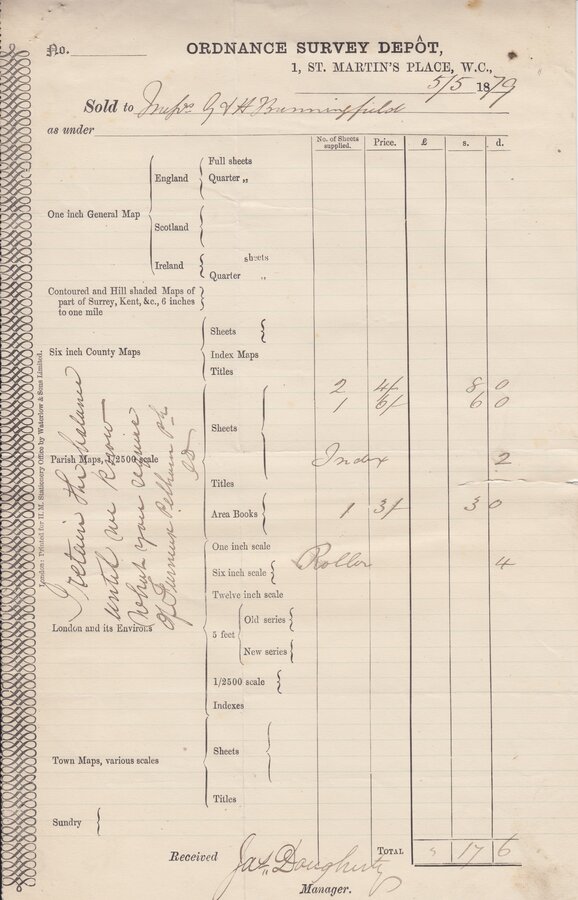 No.
ORDNANCE SURVEY DEPÔT,
1, ST. MARTIN'S PLACE, W.C.,
5/5 1879
Sold to Messrs G & H Bunningfield
as under
No. of Sheets supplied. Price. £ s. d.
One inch General Map
England
Full sheets
Quarter „
Scotland
Ireland
sheets
Quarter „
Contoured and Hill shaded Maps of
part of Surrey, Kent, &c., 6 inches
to one mile
Six inch County Maps
Sheets
Index Maps
Titles
Parish Maps, 1/2500 scale
Sheets
2 4/ 8 0
1 6/ 6 0
Index 2
Titles
Area Books 1 3/ 3 0
London and its Environs
One inch scale
Six inch scale
Roller 4
Twelve inch scale
5 feet
Old series
New series
1/2500 scale
Indexes
Town Maps, various scales
Sheets
Titles
Sundry
TOTAL 17 6
Received Jas. Dougherty
Manager.
I retain the balance
until we know
what you require
of Furneux Pelham Ph
London: Printed for H. M. Stationery Office by Waterlow & Sons Limited.